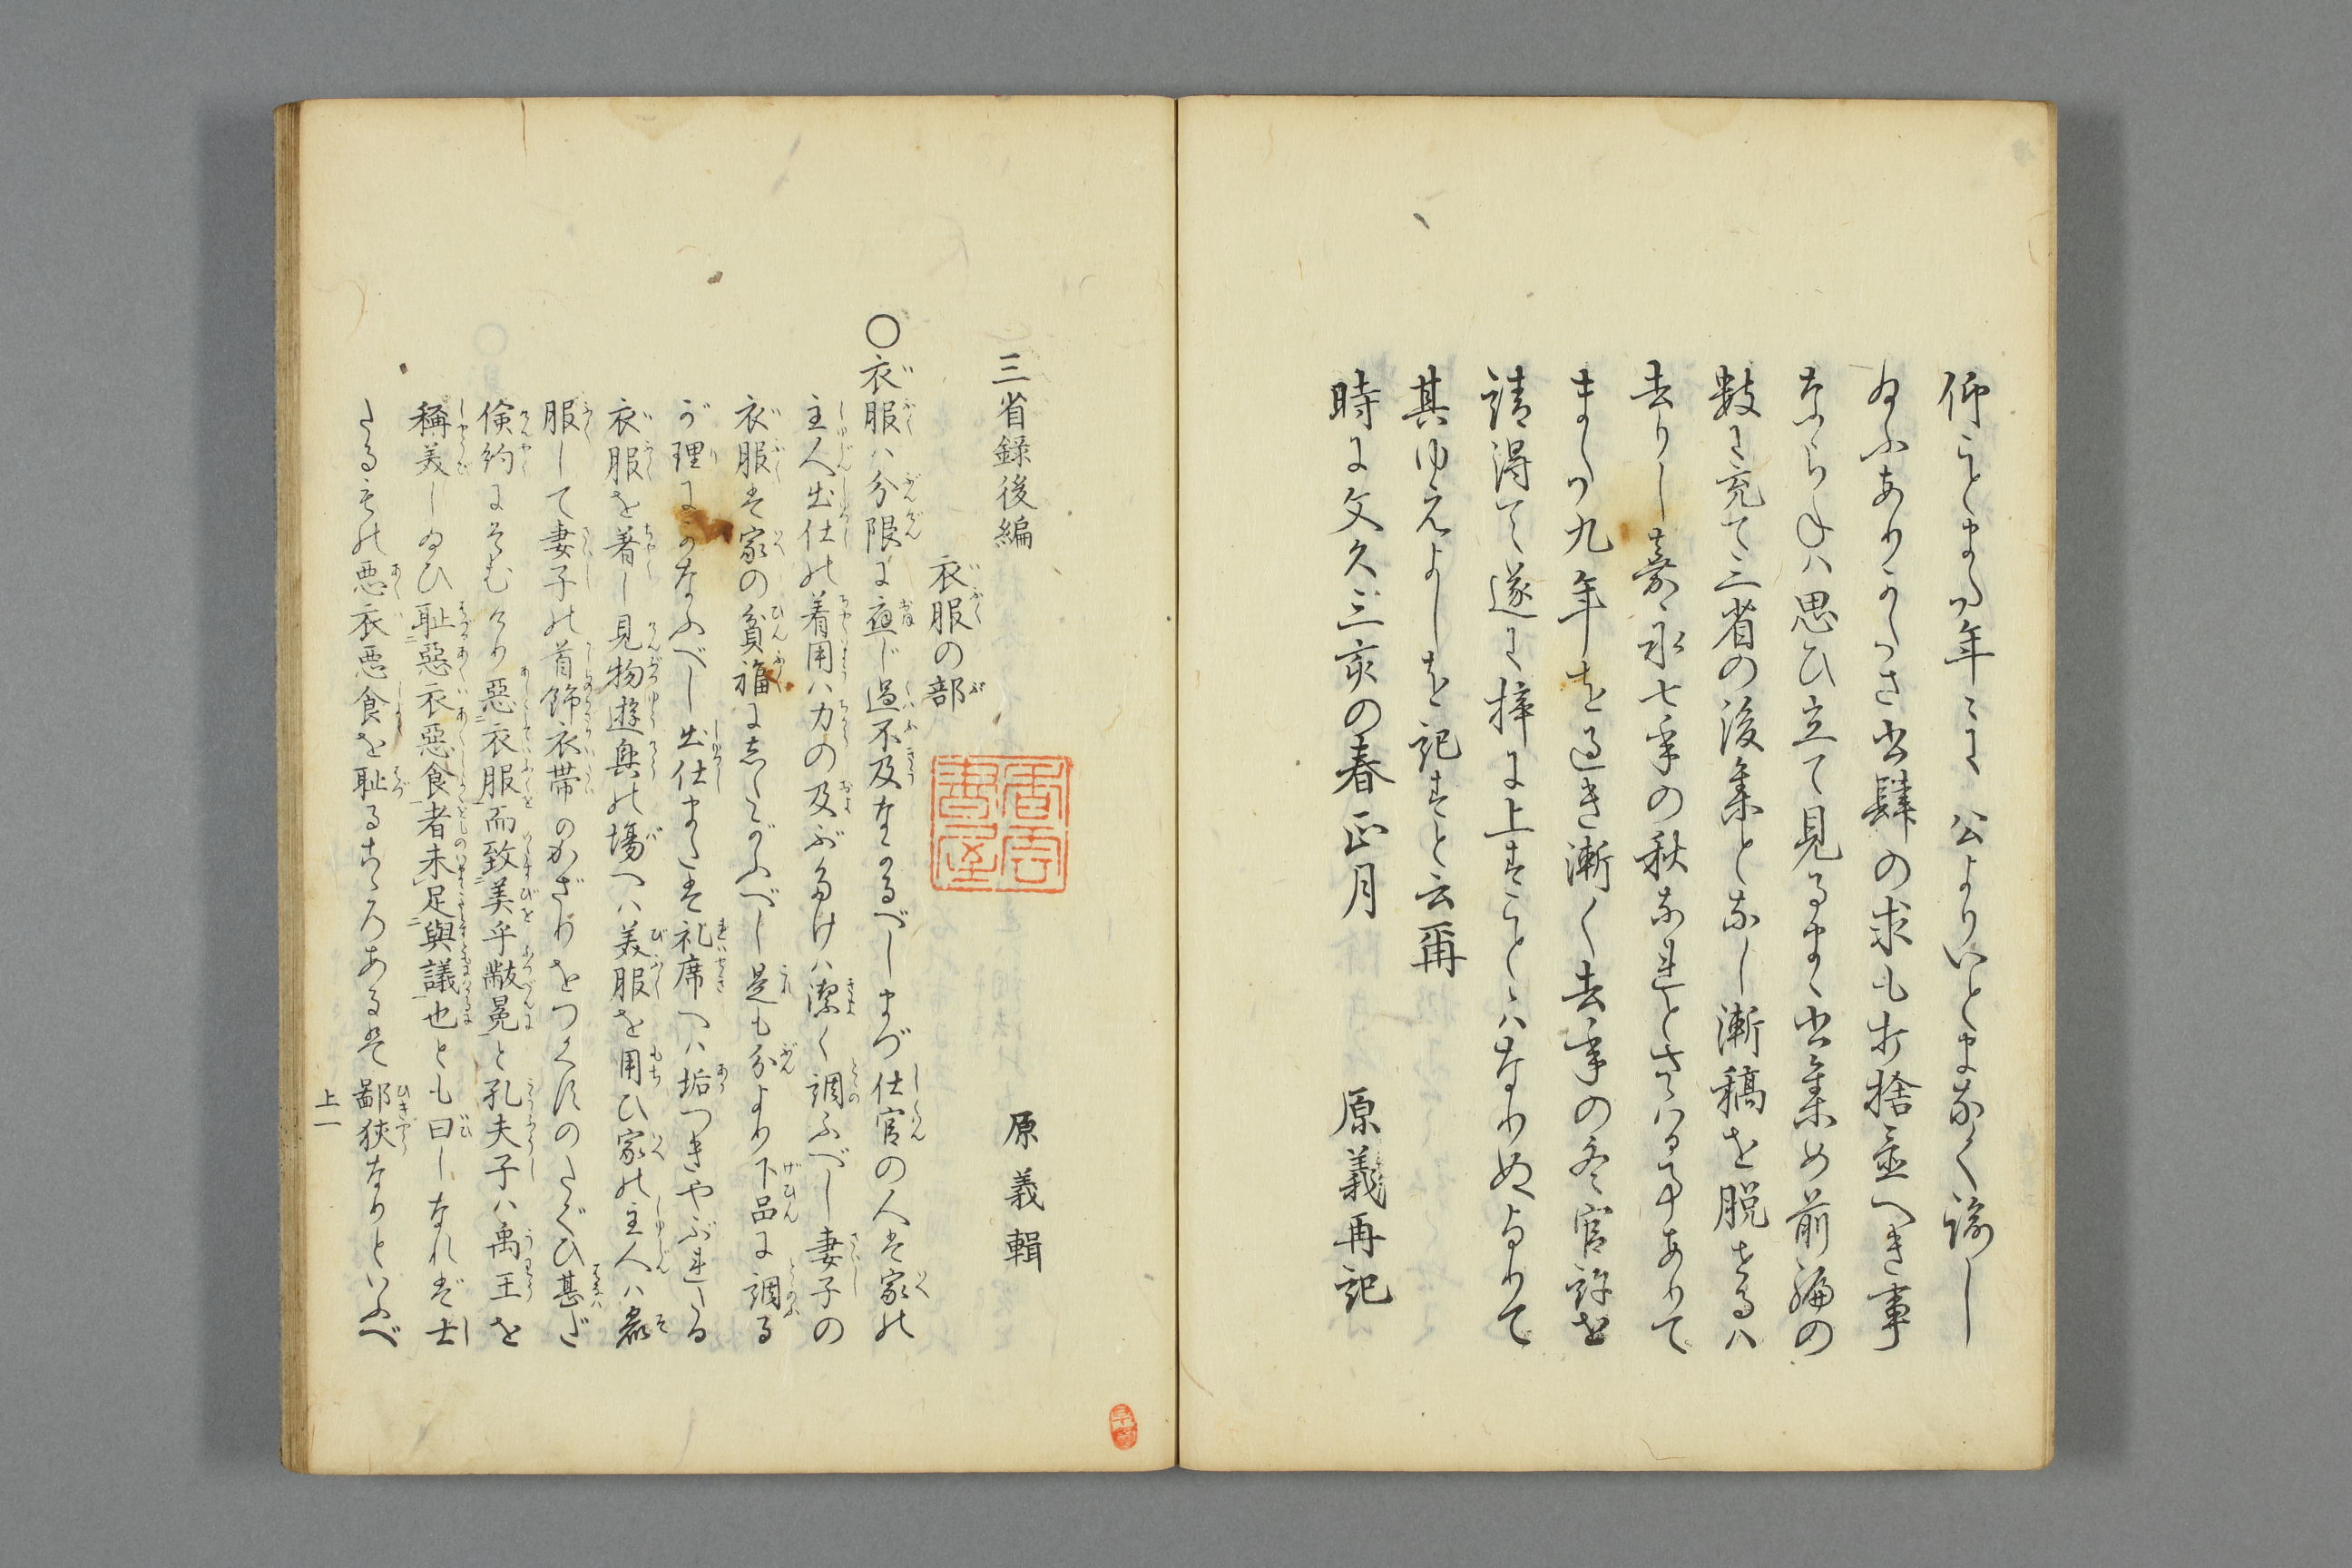 仰ことまた年々に公よりいとまなく諭し
給ふありかたさ書肆の求も打捨置へき事
ならねハ思ひ立て見るまゝ書集め前編の
数に充て三省の後集となし漸稿を脱せるハ
去りし嘉永七年の秋なれとさハる事ありて
また九年を過き漸く去年の冬官許を
請得て遂に梓に上すことゝハなりぬよりて
其ゆえよしを記すと云爾
時に文久三亥の春正月
原義再記
三省録後編
原義輯
衣服の部
〇衣服ハ分限に応じ過不及なかるべしまづ仕官の人は家の
主人出仕の着用ハ力の及ぶだけハ潔く調ふべし妻子の
衣服は家の貧福にしたがふべし是も分より下品に調る
が理にかなふべし出仕または礼席へハ垢つきやぶれたる
衣服を着し見物遊興の場へハ美服を用ひ家の主人ハ麁
服して妻子の首飾衣帯のかざりをつくすのたぐひ甚だ
倹約にそむけり悪衣服而致美乎黻冕と孔夫子ハ禹王を
称美し給ひ恥悪衣悪食者未足与議也とも曰しなれば士
たるものは悪衣悪食を恥るこゝろあるは鄙狭なりといふべ
上一